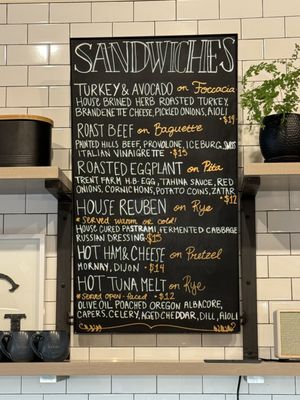 SANDWICHES
TURKEY & AVOCADO on Foccacia
HOUSE BRINED HERB ROASTED TURKEY,
BRANDETTE CHEESE, PICKLED ONIONS, AIOLI
$14
ROAST BEEF on Baguette
PAINTED HILLS BEEF, PROVOLONE, ICEBURG,
ITALIAN VINAIGRETTE $15
ROASTED EGGPLANT on Pita
TRENT FARM H.B. EGG, TAHINA SAUCE, RED
ONIONS, CORNICHONS, POTATO COINS, ZATAR
$12
HOUSE REUBEN on Rye
*SERVED WARM or cold!
HOUSE CURED PASTRAMI, FERMENTED CABBAGE
RUSSIAN DRESSING $15
HOT HAM & CHEESE on Pretzel
MORNAY, DIJON $14
HOT TUNA MELT on Rye
*Served open-faced $12
OLIVE OIL POACHED OREGON ALBACORE,
CAPERS, CELERY, AGED CHEDDAR, DILL, AIOLI